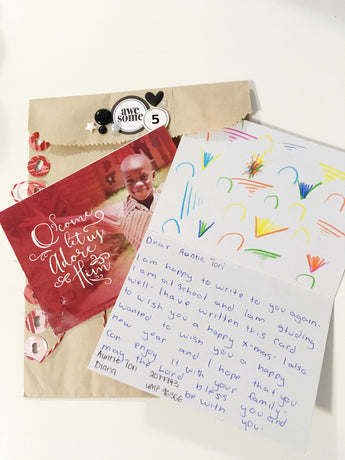 awe
some
5
O come
let us
Adore
Him
Dear Auntie Tori
I am happy to write to you again.
I am at school and I am studing
well. I have written this card
to wish you a happy x-mas. I also
wanted to wish you a happy
new year and I hope that you
can enjoy it with your family.
may the Lord bless you and
be with you.
Auntie Tori
Diana